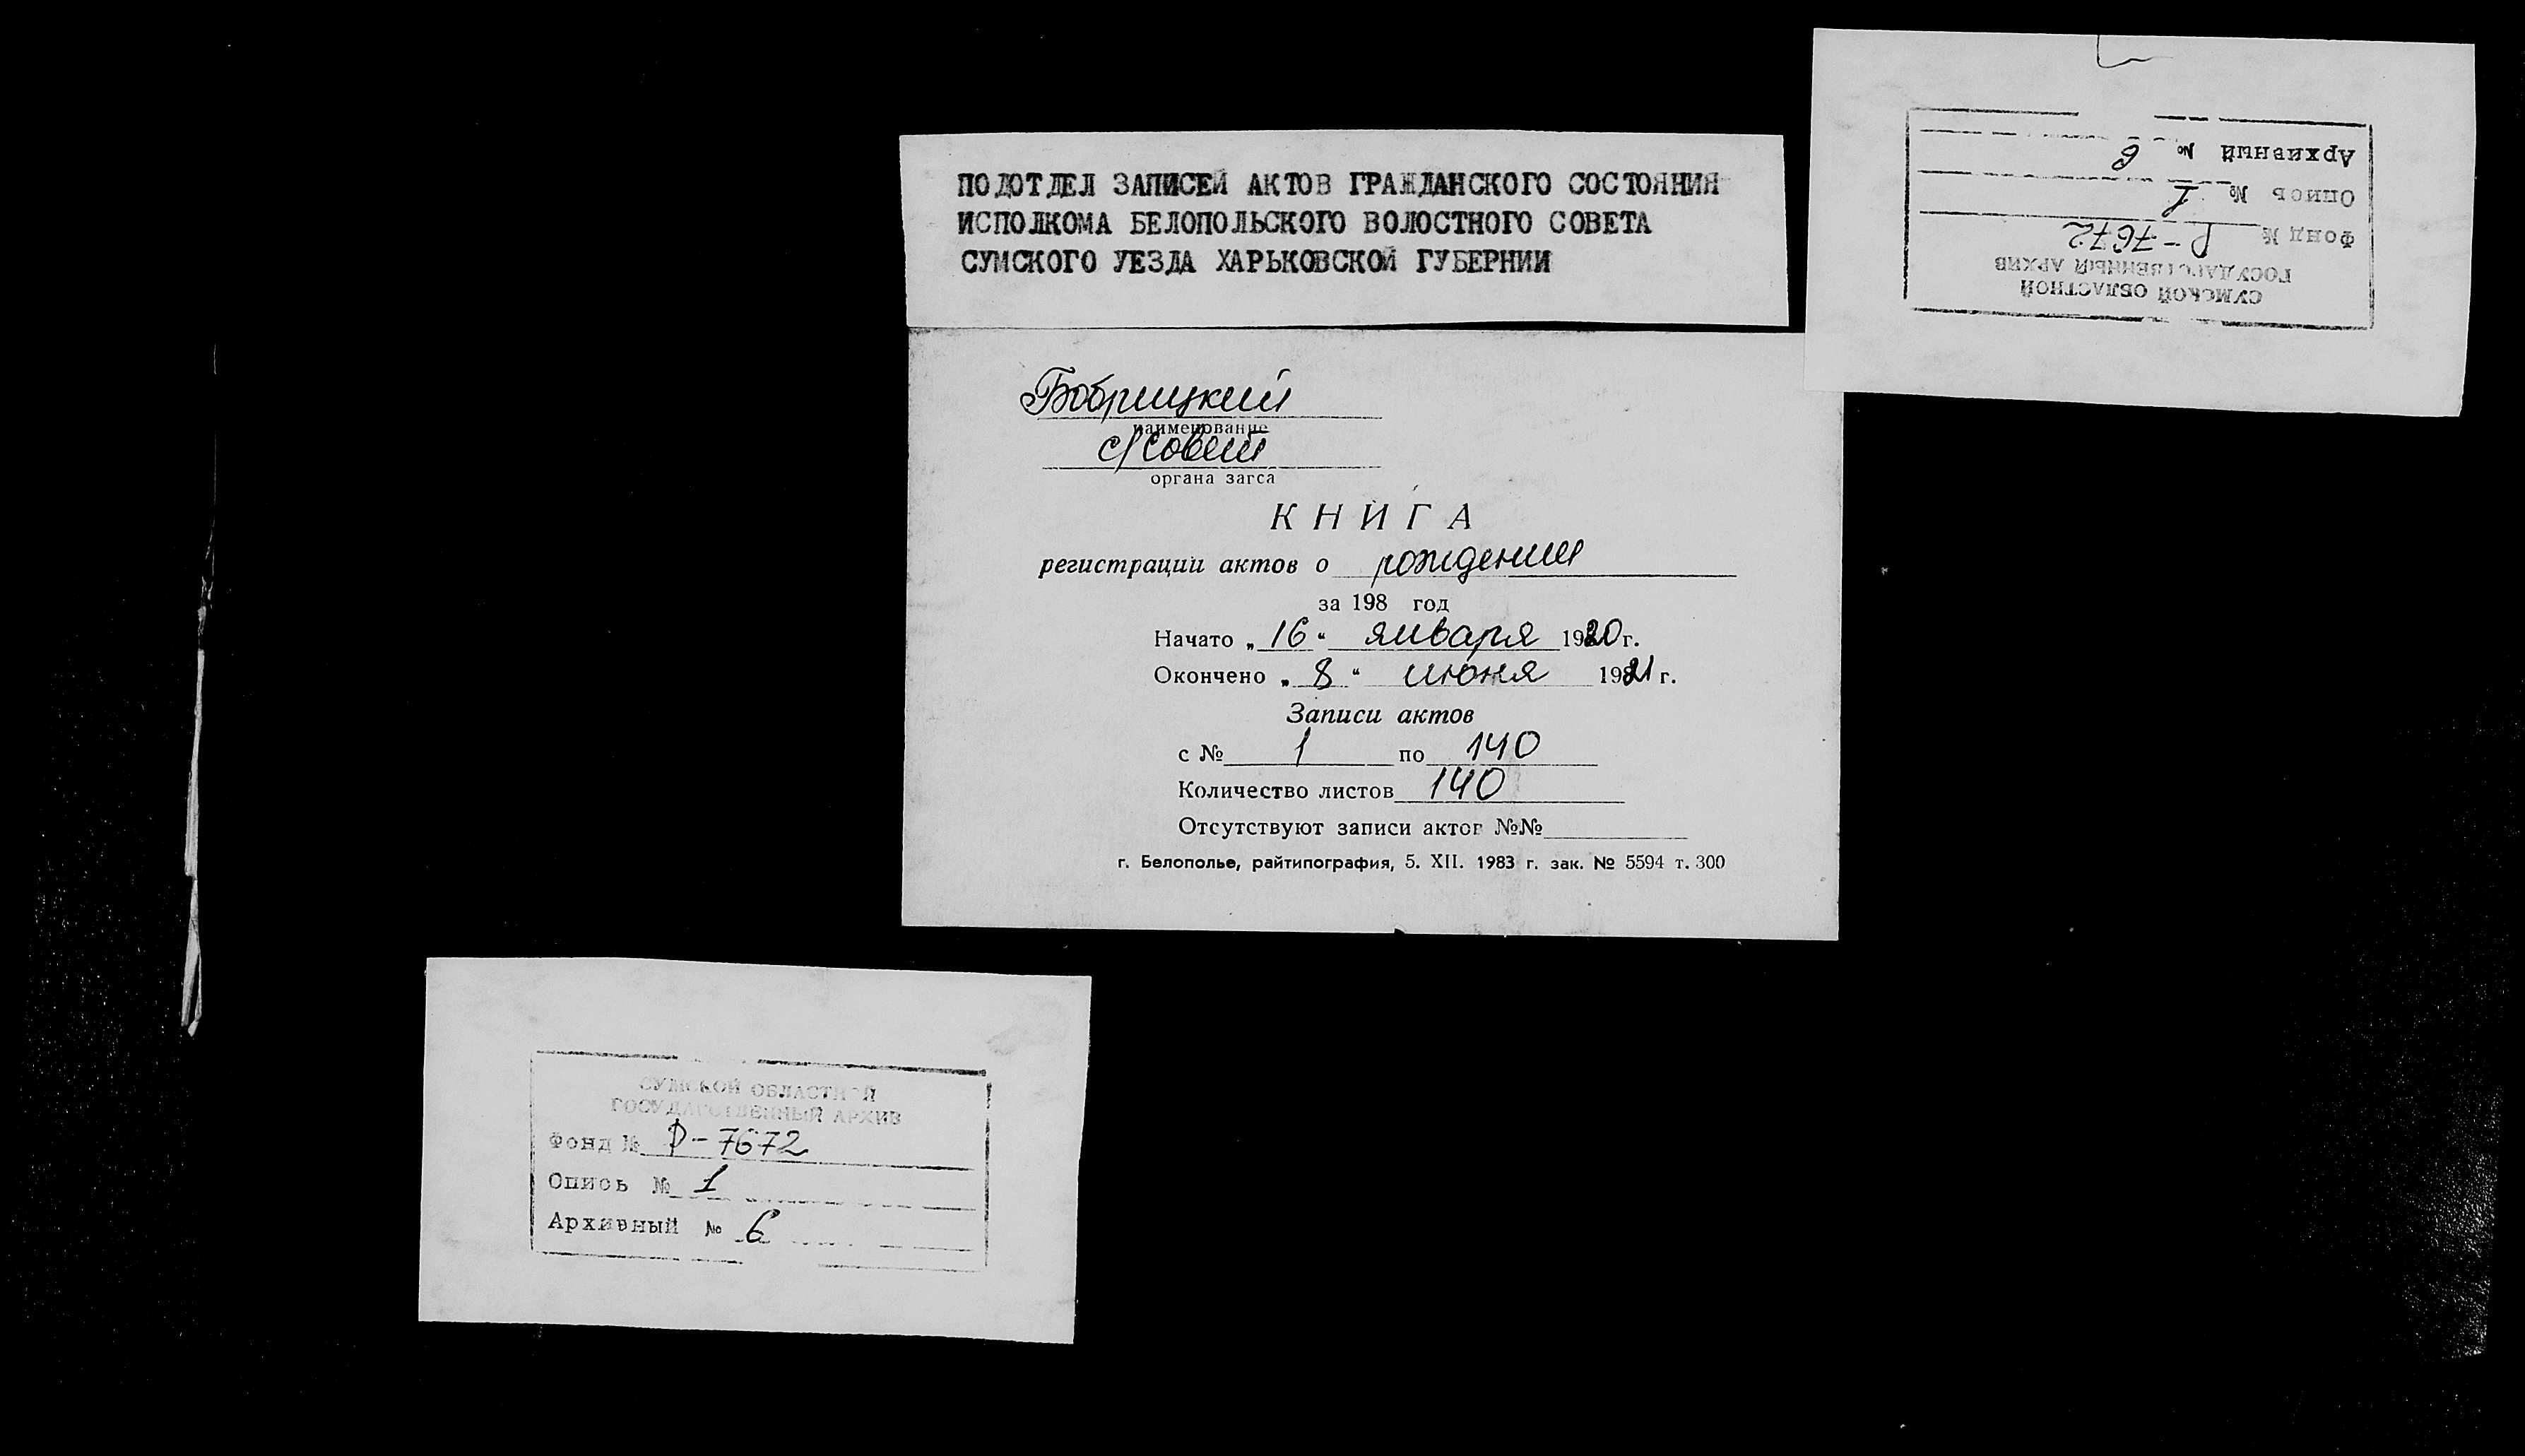 ПОДОТДЕЛ ЗАПИСЕЙ АКТОВ ГРАЖДАНСКОГО СОСТОЯНИЯ
ИСПОЛКОМА БЕЛОПОЛЬСКОГО ВОЛОСТНОГО СОВЕТА
СУМСКОГО УЕЗДА ХАРЬКОВСКОЙ ГУБЕРНИИ
Бобрицкий
наименование
с/совет
органа загса
КНИГА
регистрации актов о рождении
за 198 год
Начато „16“ января 1920 г.
Окончено „8“ июня 1921 г.
Записи актов
с № 1 по 140
Количество листов 140
Отсутствуют записи актов №№
г. Белополье, райтипография, 5. XII. 1983 г. зак. № 5594 т. 300
СУМСКОЙ ОБЛАСТНОЙ
ГОСУДАРСТВЕННЫЙ АРХИВ
Фонд № Р-7672
Опись № 1
Архивный № 6
СУМСКОЙ ОБЛАСТНОЙ
ГОСУДАРСТВЕННЫЙ АРХИВ
Фонд № Р-7672
Опись № 1
Архивный № 6